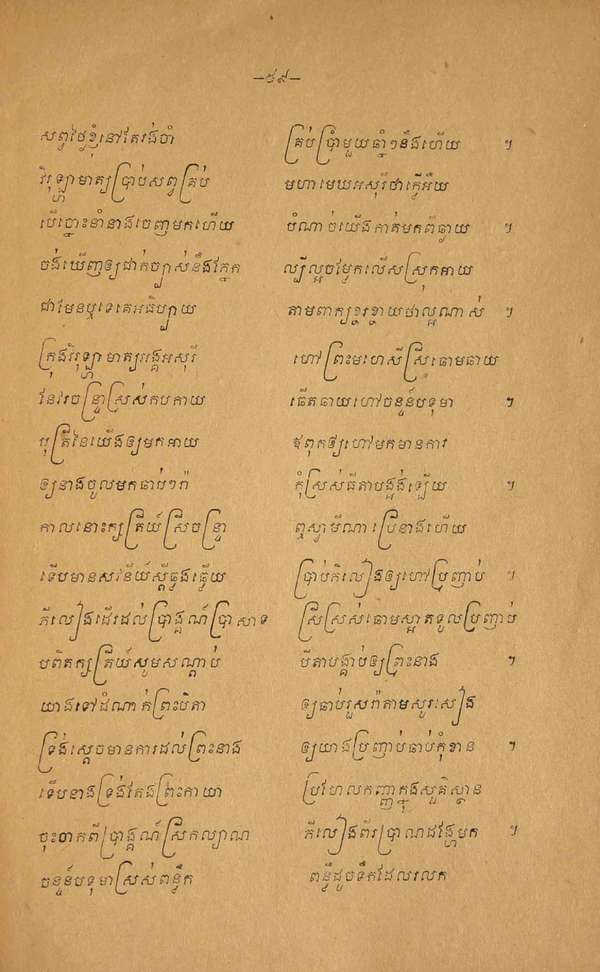 –៥៩–
សព្វថ្ងៃខ្ញុំនៅតែរង់ចាំ គ្រប់ប្រាំមួយឆ្នាំៗនឹងហើយ ។
វិរុឡ្ហាមាត្យប្រាប់សព្វគ្រប់ មហាមេឃអសុរីថាធ្វើអ្វីយ
បើច្នោះនាំនាងចេញមកហើយ បំណាច់យើងកាត់មកពីឆ្ងាយ ។
ចង់ឃើញឲ្យជាក់ច្បាស់នឹងភ្នែក ល្បីល្អចម្លែកលើសស្រុកអាយ
ជាមែនឬទេតេអធិប្បាយ តាមពាក្យខ្ចរខ្ចាយថាល្អណាស់ ។
ក្រុងវិរុឡ្ហាមាត្យអង្គអសុរី ហៅព្រះមហេសីស្រីឆោមឆាយ
នែវរចន្ទ្រាស្រស់កបកាយ ធើតឆាយហៅចន្ទន៍បទុមា ។
បុត្រីនៃយើងឲ្យមកអាយ ឪពុកឲ្យហៅមកមានការ
ឲ្យនាងចូលមកឆាប់ៗរ៉ា កុំស្រស់ធីតាបង្អង់ឡើយ ។
កាលនោះក្សត្រីយ៍ស្រីចន្ទ្រា ឮស្វាមីណាប្រើនាងហើយ
ទើបមានសវនីយ៍ស្ដីធ្លងធ្លើយ ប្រាប់ភីលៀងឲ្យហៅប្រញាប់ ។
ភីលៀងដើរដល់ប្រាង្គណ៍ប្រាសាទ ស្រីស្រស់ឆោមស្អាតទូលប្រញាប់
បពិតក្សត្រីយ៍សូមសណ្ដាប់ បីតាបង្គាប់ឲ្យព្រះនាង ។
យាងទៅដំណាក់ព្រះបិតា ឲ្យឆាប់រួសរ៉ាតាមសូរសៀង
ទ្រង់ស្ដេចមានការដល់ព្រះនាង ឲ្យយាងប្រញាប់ឆាប់កុំខាន ។
ទើបនាងទ្រង់តែងព្រះកាយា ប្រហែលកញ្ញាក្នុងសួគ៌ស្ថាន
ចុះចាកពីប្រាង្គណ៍ស្រីកល្យាណ ភីលៀងពីរប្រាណដង្ហែមក ។
ចន្ទន៍បទុមាស្រស់ពន្លឹក ពន្លឺដូចទឹកដែលរលក